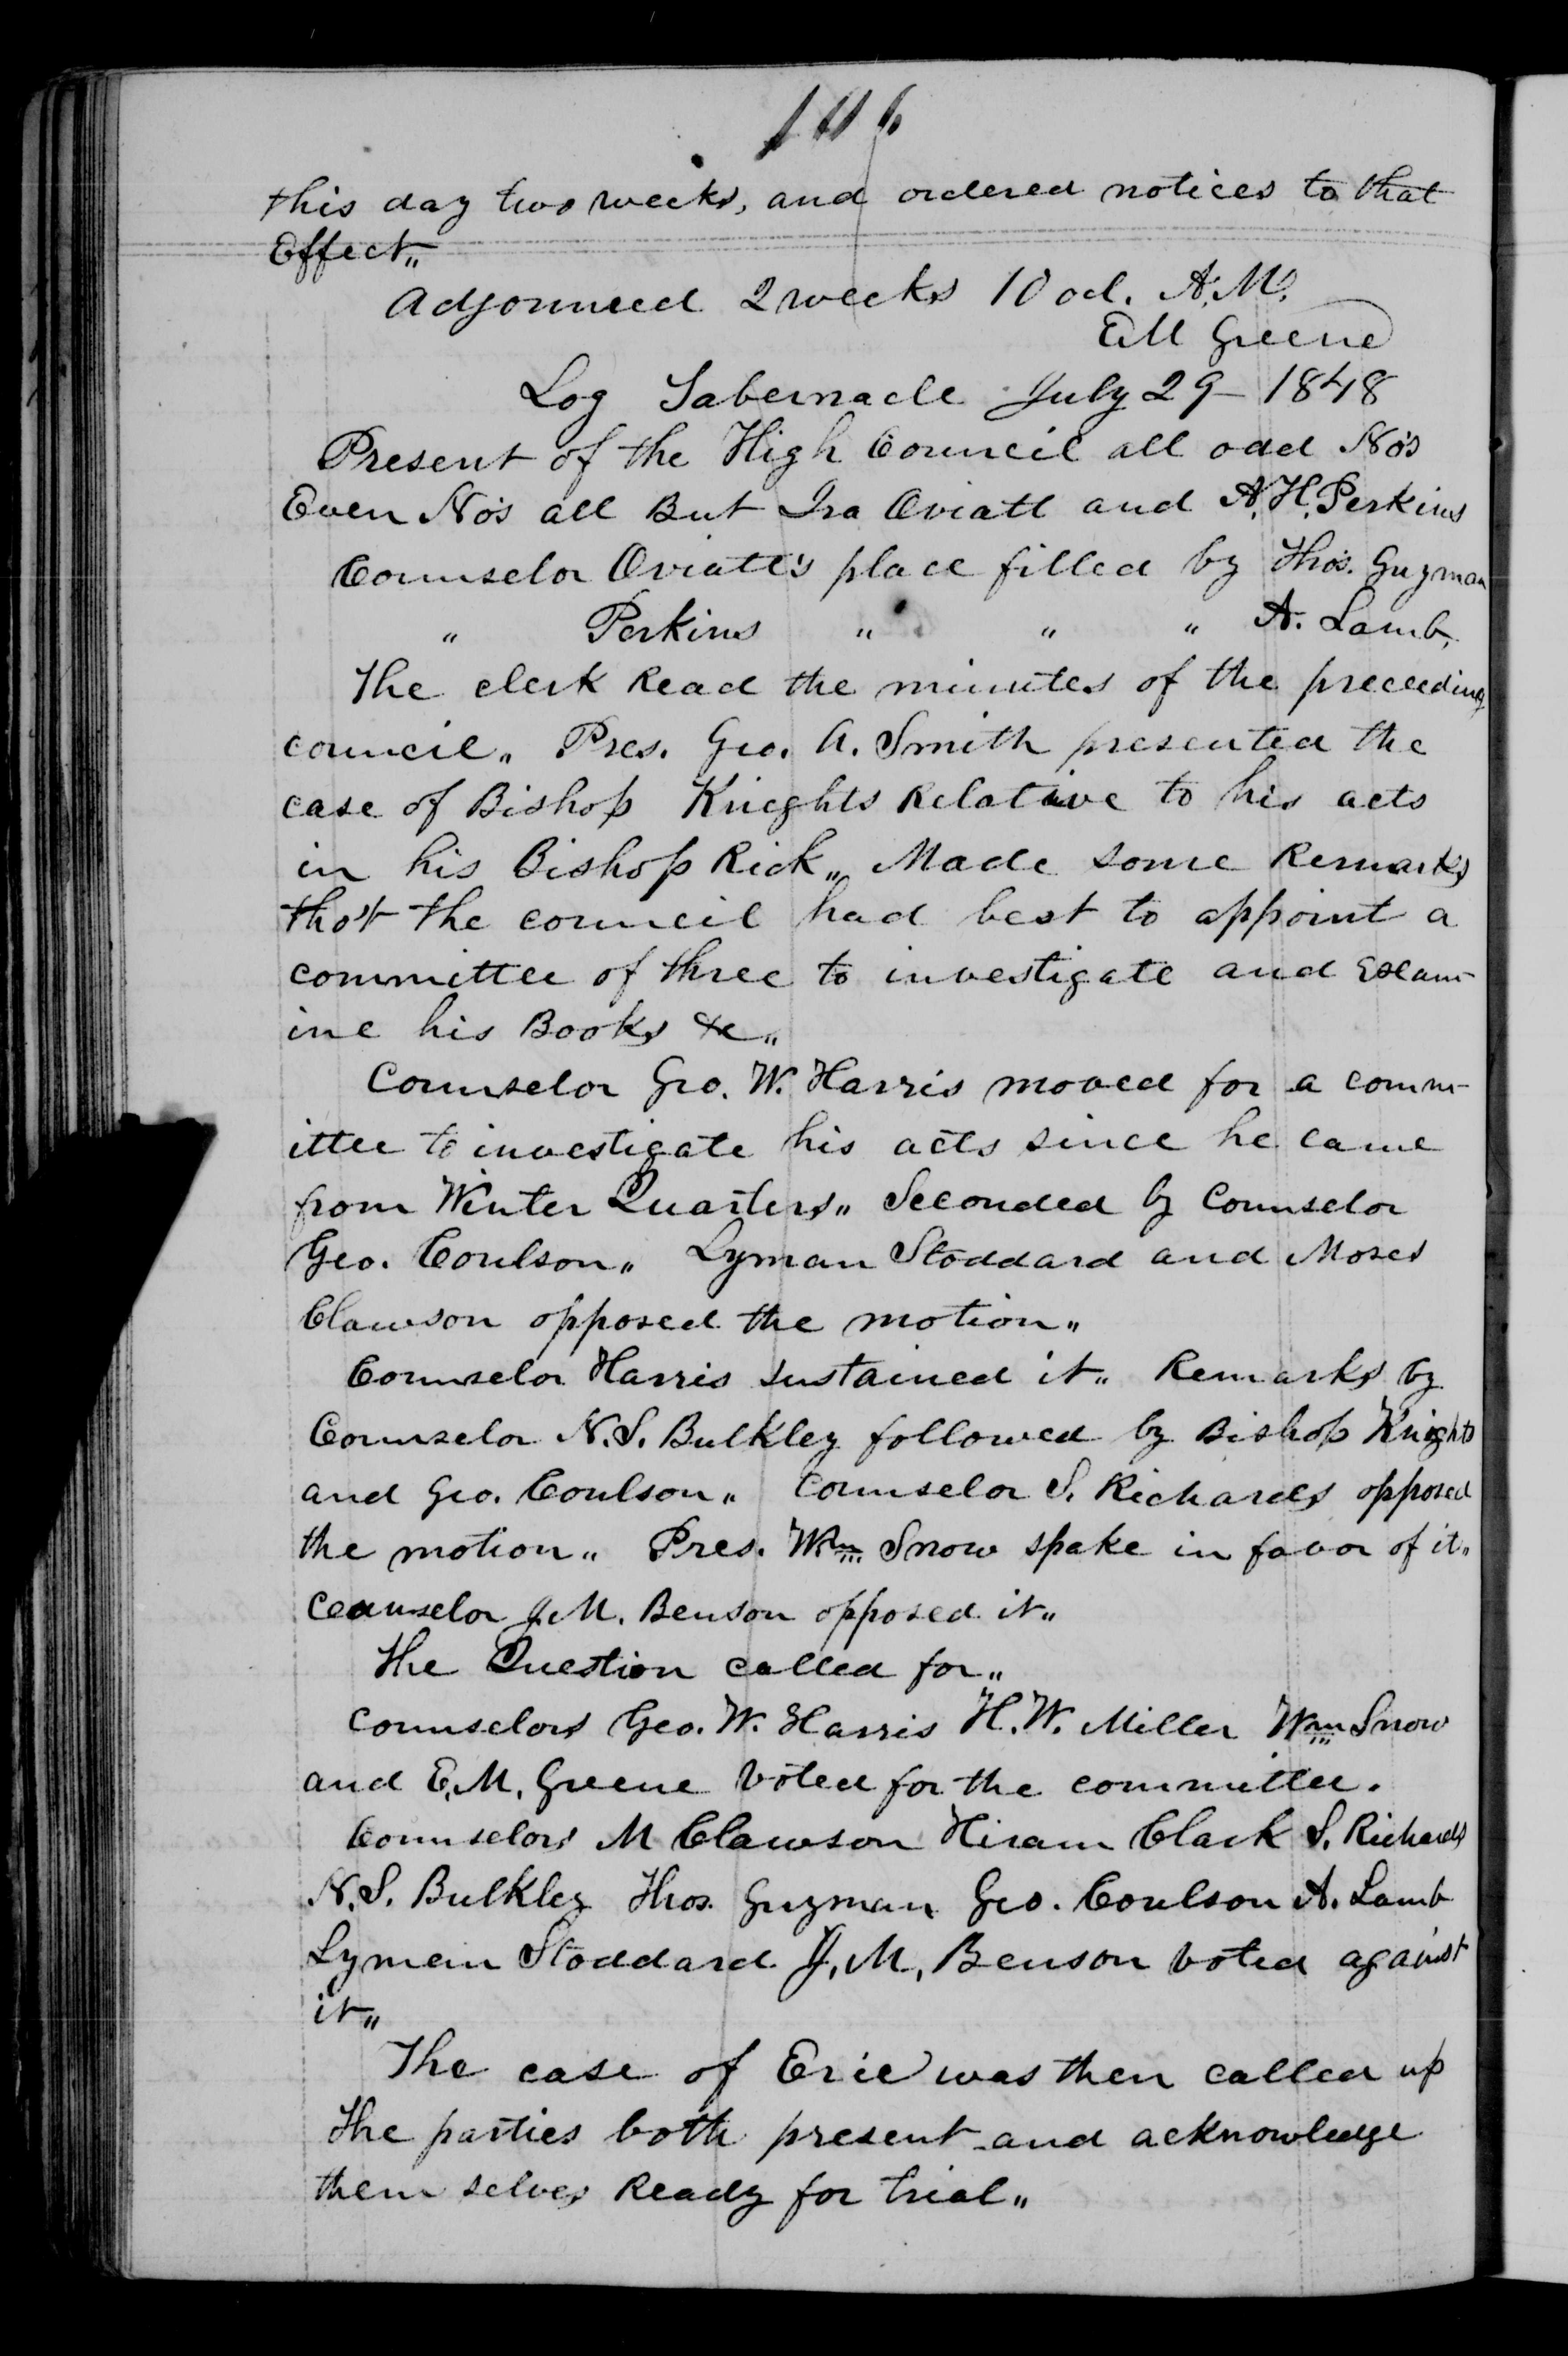 this day two weeks, and ordered notices to that
Effect„
Adjourned 2 weeks 10 ocl. A.M.
E M Greene
Log Tabernacle July 29 – 1848
Present of the High Council all odd No's
Even No's all But Ira Oviatt and A. H. Perkins
Counselor Oviatt's place filled by Tho's. Guyman
" Perkins " " " A. Lamb.
The clerk Read the minutes of the preceeding
council„ Pres. Geo. A. Smith presented the
case of Bishop Knights Relative to his acts
in his Bishop Rick„ Made some Remarks
tho't the council had best to appoint a
committee of three to investigate and Exam-
ine his Books &c„
Counselor Geo. W. Harris moved for a comm-
ittee to investigate his acts since he came
from Winter Quarters„ Seconded by Counselor
Geo. Coulson„ Lyman Stoddard and Moses
Clawson opposed the motion„
Counselor Harris sustained it„ Remarks by
Counselor N. S. Bulkley followed by Bishop Knights
and Geo. Coulson„ Counselor S. Richards opposed
the motion„ Pres. Wm Snow spake in favor of it„
Counselor J. M. Benson opposed it„
The Question called for„
Counselors Geo. W. Harris H. W. Miller Wm Snow
and E. M. Greene voted for the committee.
Counselors M Clawson Hiram Clark S. Richards
N. S. Bulkley Thos. Guyman Geo. Coulson A. Lamb
Lyman Stoddard J. M. Benson voted against
it„
The case of Erie was then called up
The parties both present and acknowledge
them selves Ready for trial„